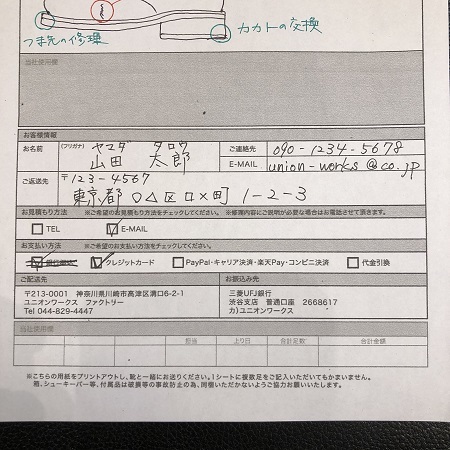 つま先の修理
カカトの交換
当社使用欄
お客様情報
お名前 (フリガナ) ヤマダ タロウ
山田 太郎
ご連絡先 090-1234-5678
E-MAIL union-works@co.jp
ご返送先 〒123-4567
東京都 ○△区ロ×町 1-2-3
お見積もり方法 ※ご希望のお見積もり方法をチェックしてください。 ※修理内容にご説明が必要な場合はお電話させて頂きます。
TEL E-MAIL
お支払い方法 ※ご希望のお支払い方法をチェックしてください。
クレジットカード PayPal・キャリア決済・楽天Pay・コンビニ決済 代金引換
ご配送先 お振込み先
〒213-0001 神奈川県川崎市高津区溝口6-2-1
ユニオンワークス ファクトリー
Tel 044-829-4447
三菱UFJ銀行
渋谷支店 普通口座 2668617
カ)ユニオンワークス
当社使用欄
担当 上り日 合計足数 合計金額
※こちらの用紙をプリントアウトし、靴と一緒にお送りください。1シートに複数足をご記入いただいてもかまいません。
箱、シューキーパー等、付属品は破損等の事故防止の為、同梱いただかないようご協力お願いいたします。